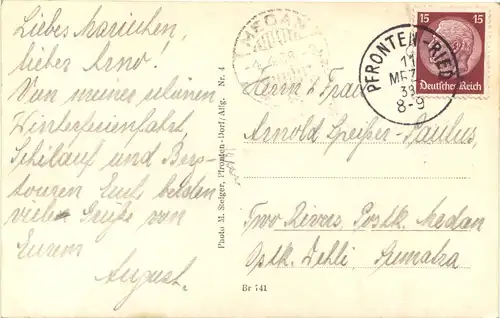 Liebes Mariechen,
lieber Arno!
Von meiner schönen
Winterferienfahrt,
Schilauf und Berg-
touren Euch beiden
viele Grüße von
Eurem
August.
Photo M. Steiger, Pfronten-Dorf/Allg. Nr. 4
MEDAN
PFRONTEN-RIED
11
38
8-9
15 15
Deutsches Reich
Herrn & Frau
Arnold Speißer-Paulus,
Two Rivers, Postk. Medan
Ostk. Dehli, Sumatra
Br 741